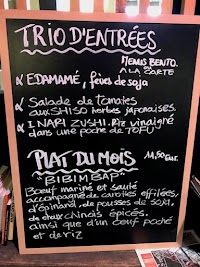 TRIO D'ENTRÉES
MENUS BENTO.
ou
À LA CARTE
EDAMAMÉ, fèves de soja
Salade de tomates
aux SHISO herbes japonaises.
INARI ZUSHI. Riz vinaigré
dans une poche de TOFU
PLAT DU MOIS
"BIBIMBAP" 11,50 Eur.
Boeuf mariné et sauté
accompagné de carottes effilées,
d'épinard, de pousses de soja,
de choux chinois épicés.
ainsi que d'un oeuf poché
et de riz